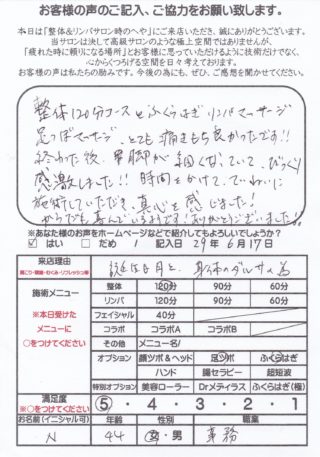 お客様の声のご記入、ご協力をお願い致します。
本日は「整体&リンパサロン時のへや」にご来店いただき、誠にありがとうございます。
当サロンは決して高級サロンのような極上空間ではありませんが、
「疲れた時に頼りになる場所」とお客様に思っていただけるように技術だけでなく、
心からくつろげる空間を日々考えております。
お客様の声は私たちの励みです。今後の為にも、ぜひ、ご感想を聞かせてください。
整体120分コースとふくらはぎリンパマッサージ
足つぼマッサージ、とても痛きもち良かったです!!
終わった後、両脚が細くなっていて、びっくり
感激しました!! 時間をかけて、ていねいに
施術していただき、真心を感じました!
からだも喜んでいるようです!ありがとうございました!!
※あなた様のお声をホームページなどで紹介してもよろしいでしょうか?
はい 　だめ / 記入日 29年 6月17日
来店理由
肩こり・腰痛・むくみ・リフレッシュ等
誕生日月と、身体のダルサの為
施術メニュー
※本日受けた
メニューに
〇をつけてください
整体 120分 90分 60分
リンパ 120分 90分 60分
フェイシャル 40分
コラボ コラボA コラボB
その他 メニュー名/
オプション 顔ツボ&ヘッド 足ツボ ふくらはぎ
ハンド 腸セラピー 超短波
特別オプション 美容ローラー Drメディラス ふくらはぎ(極)
満足度
※〇をつけてください
5・4・3・2・1
お名前(イニシャル可) 年齢 性別 職業
N 44 女・男 事務